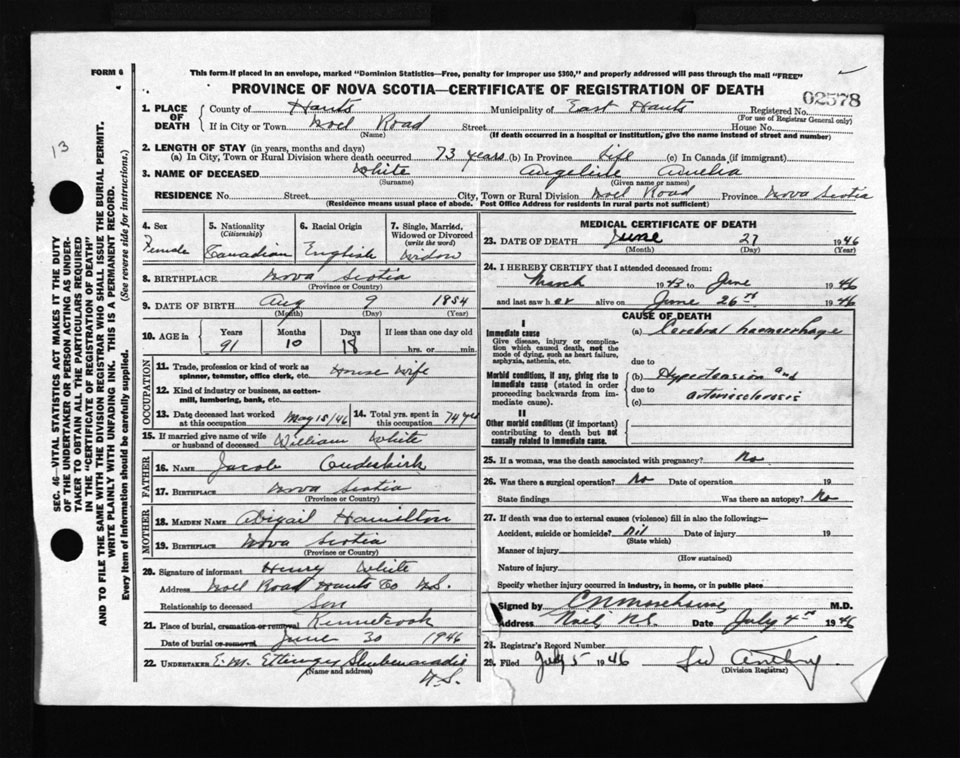 FORM 6
This form if placed in an envelope, marked "Dominion Statistics—Free, penalty for improper use $300," and properly addressed will pass through the mail "FREE"
PROVINCE OF NOVA SCOTIA—CERTIFICATE OF REGISTRATION OF DEATH
02578
13
SEC. 46—VITAL STATISTICS ACT MAKES IT THE DUTY
OF THE UNDERTAKER OR PERSON ACTING AS UNDER-
TAKER TO OBTAIN ALL THE PARTICULARS REQUIRED
IN THE "CERTIFICATE OF REGISTRATION OF DEATH"
AND TO FILE THE SAME WITH THE DIVISION REGISTRAR WHO SHALL ISSUE THE BURIAL PERMIT.
WRITE PLAINLY WITH UNFADING INK. THIS IS A PERMANENT RECORD.
Every item of information should be carefully supplied. (See reverse side for instructions.)
1. PLACE OF DEATH County of Hants Municipality of East Hants Registered No.
(For use of Registrar General only)
If in City or Town Noel Road Street House No.
(Name) (If death occurred in a hospital or institution, give the name instead of street and number)
2. LENGTH OF STAY (in years, months and days)
(a) In City, Town or Rural Division where death occurred 73 years (b) In Province Life (c) In Canada (if immigrant)
3. NAME OF DECEASED White Amelia
(Surname) (Given name or names)
RESIDENCE No Street City, Town or Rural Division Noel Road Province Nova Scotia
(Residence means usual place of abode. Post Office Address for residents in rural parts not sufficient)
4. Sex Female
5. Nationality (Citizenship) Canadian
6. Racial Origin English
7. Single, Married, Widowed or Divorced (write the word) Widow
8. BIRTHPLACE Nova Scotia
(Province or Country)
9. DATE OF BIRTH Aug 9 1854
(Month) (Day) (Year)
10. AGE in Years 91 Months 10 Days 18 If less than one day old
hrs. or min.
OCCUPATION
11. Trade, profession or kind of work as spinner, teamster, office clerk, etc. House Wife
12. Kind of industry or business, as cotton-mill, lumbering, bank, etc.
13. Date deceased last worked at this occupation May 15/46
14. Total yrs. spent in this occupation 74 yrs
15. If married give name of wife or husband of deceased William White
FATHER
16. NAME Jacob
17. BIRTHPLACE Nova Scotia
(Province or Country)
MOTHER
18. MAIDEN NAME Abigail Hamilton
19. BIRTHPLACE Nova Scotia
(Province or Country)
20. Signature of informant Henry White
Address Noel Road Hants Co N.S.
Relationship to deceased Son
21. Place of burial, cremation or removal Kennetcook
Date of burial or removal June 30 1946
22. UNDERTAKER E.M. Ettinger Shubenacadie
(Name and address)
N.S.
MEDICAL CERTIFICATE OF DEATH
23. DATE OF DEATH June 27 1946
(Month) (Day) (Year)
24. I HEREBY CERTIFY that I attended deceased from:
March 1943 to June 1946
and last saw her alive on June 26 1946
CAUSE OF DEATH
I
Immediate cause (a) Cerebral haemorrhage
Give disease, injury or complica-
tion which caused death, not the
mode of dying, such as heart failure,
asphyxia, asthenia, etc.
due to
Morbid conditions, if any, giving rise to
immediate cause (stated in order
proceeding backwards from im-
mediate cause).
(b) Hypertension and
due to
(c) arteriosclerosis
II
Other morbid conditions (if important)
contributing to death but not
causally related to immediate cause.
25. If a woman, was the death associated with pregnancy? No
26. Was there a surgical operation? No Date of operation 19
State findings Was there an autopsy? No
27. If death was due to external causes (violence) fill in also the following:—
Accident, suicide or homicide? nil Date of injury 19
(State which)
Manner of injury
(How sustained)
Nature of injury
Specify whether injury occurred in industry, in home, or in public place
Signed by M.D.
Address Noel, N.S. Date July 4 1946
28. Registrar's Record Number
29. Filed July 5 1946
(Division Registrar)